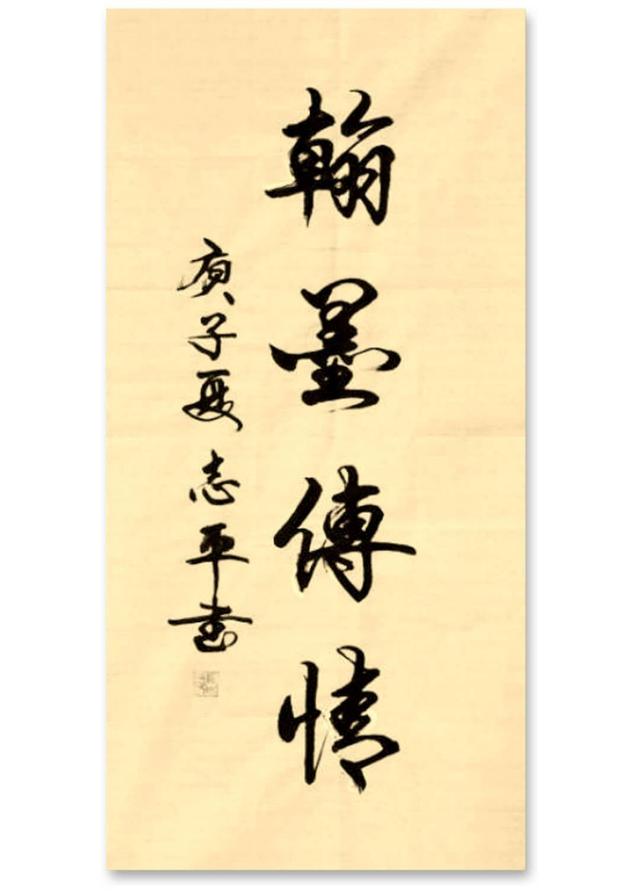 翰墨傳情
庚子夏志平書